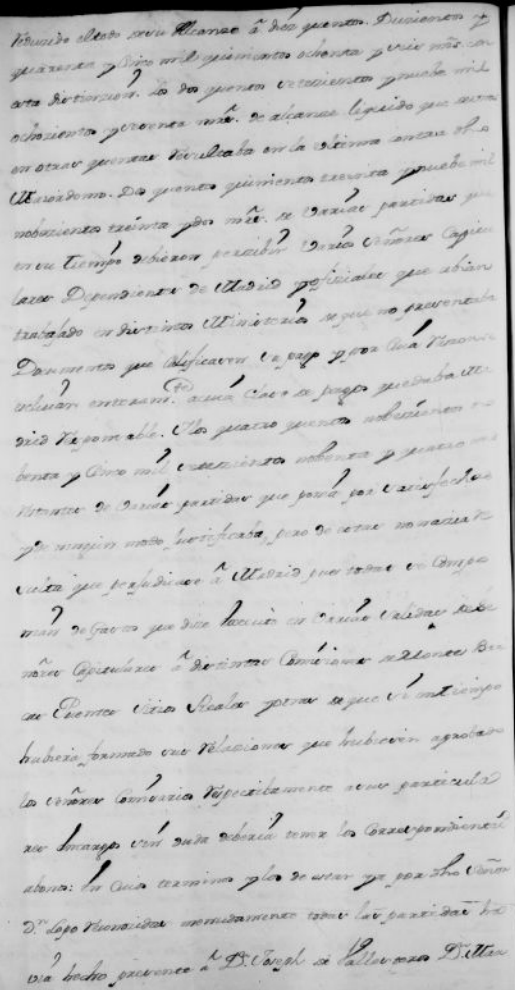 reducido el todo de su Alcanze â diez quentos. Duzientos y
quarenta y Cinco mil quinientos ochenta y seis mrs. con
esta distinzion. Los dos quentos setezientos y nuebe mil
ochozientos y setenta mrs. de alcanze liquido que
en otras quentas resultaba en la ultima contra dho
Mayordomo. Dos quentos quinientos treinta y nuebe mil
nobezientos treinta y dos mrs. de varias partidas que
en su tiempo debieron percibir varios Señores Capitu
lares Dependientes de Madrid y oficiales que abian
trabajado en distintos Ministerios de que no presentaba
Documentos que calificasen su pago y por cuia razon
excluian enteram.te a cuia clase de pagos quedaba Ma
drid responsable. Y los quatro quentos nobezientos no
benta y Cinco mil setezientos nobenta y quatro mrs
restantes de varias partidas que ponia por satisfechas
y de ningun modo justificaba, pero de estas no nazia re
sulta que perjudicase â Madrid pues todas se compo
nian de Gastos que dize hacia en varias salidas de Se
ñores Capitulares â distintas Comisiones de Montes
Puentes Sitios Reales y otras de que si en tiempo
hubiera formado sus relaziones que hubiesen aprobado
los señores Comisarios respectibamente a sus particula
res encargos sin duda deberia tener los correspondientes
abonos: En cuios terminos y los de estar ya por dho Señor
Dn. Lope reconozidas menudamente todas las partidas ha
via hecho presente â Dn. Joseph de Ballesteros Dn. Man